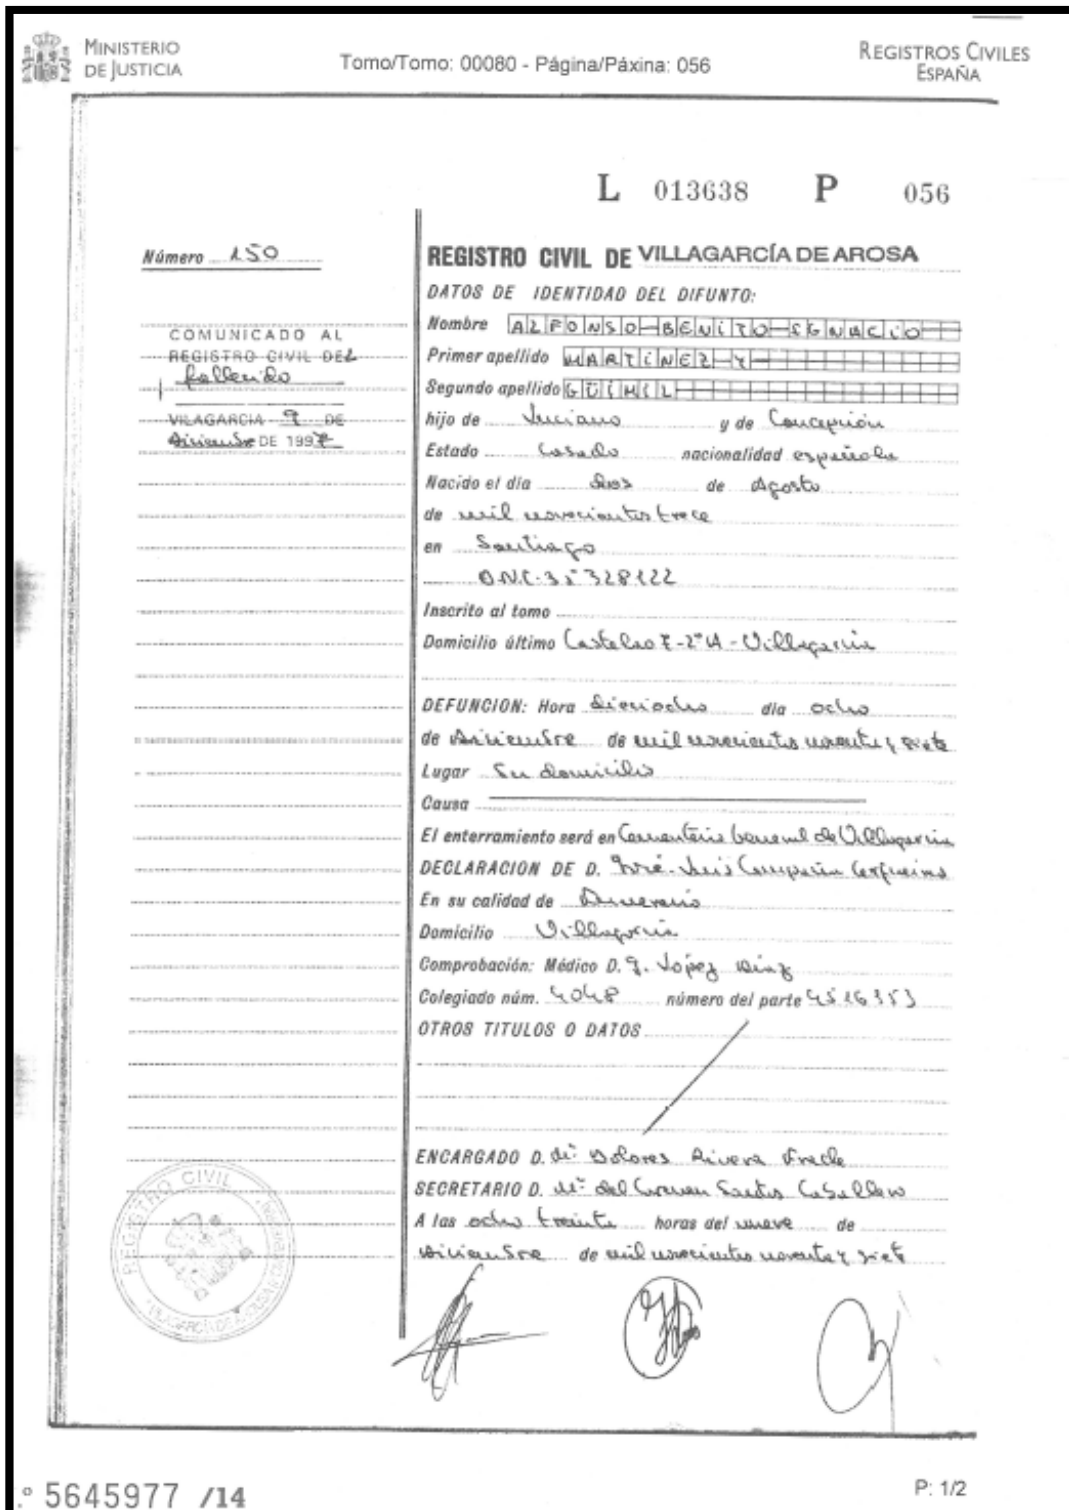 MINISTERIO
DE JUSTICIA
Tomo/Tomo: 00080 - Página/Páxina: 056
REGISTROS CIVILES
ESPAÑA
L 013638 P 056
Número 150
COMUNICADO AL
REGISTRO CIVIL DEL
fallecido
VILAGARCIA 9 DE
diciembre DE 1997
REGISTRO CIVIL DE VILLAGARCÍA DE AROSA
DATOS DE IDENTIDAD DEL DIFUNTO:
Nombre ALFONSO-BENITO-IGNACIO
Primer apellido MARTINEZ Y
Segundo apellido GÜIMIL
hijo de Luciano y de Concepción
Estado Casado nacionalidad española
Nacido el día dos de Agosto
de mil novecientos trece
en Santiago
D.N.I. 35328122
Inscrito al tomo
Domicilio último Castelao 7-2º A - Villagarcía
DEFUNCION: Hora dieciocho día ocho
de diciembre de mil novecientos noventa y siete
Lugar Su domicilio
Causa
El enterramiento será en Cementerio General de Villagarcía
DECLARACION DE D. José-Luis Campaña
En su calidad de
Domicilio Villagarcía
Comprobación: Médico D. J. López Díaz
Colegiado núm. 4048 número del parte
OTROS TITULOS O DATOS
ENCARGADO D. Mª Dolores Rivera Fraile
SECRETARIO D. Mª del Carmen Santos Caballero
A las ocho treinta horas del nueve de
diciembre de mil novecientos noventa y siete
REGISTRO CIVIL
P: 1/2
.º 5645977 /14